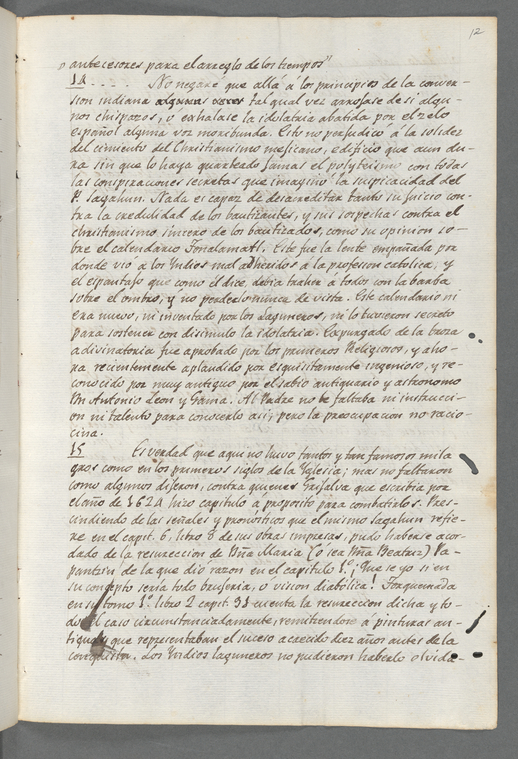 12
antecesores para el arreglo de los tiempos"
14.... No negaré que allá á los principios de la conver-
sion indiana algunas veces tal qual vez arrojase de si algu-
nos chispazos, ó exhalase la idolatria abatida por el zelo
español alguna voz moribunda. Esto no perjudicó á la solidez
del cimiento del Christianismo mexicano, edificio que aun du-
ra sin que lo haya quarteado jamas el polyteismo con todas
las conspiraciones secretas que imaginó la suspicacidad del
P. Sagahun. Nada es capaz de desacreditar tanto su juicio con-
tra la credulidad de los bautizantes, y sus sospechas contra el
christianismo sincero de los bautizados, como su opinion so-
bre el calendario Tonalamatl. Este fue la lente empañada por
donde vió á los Yndios mal adheridos á la profesion catolica, y
el espantajo que como el dice, debia traher á todos con la barba
sobre el ombro, y no perderlo nunca de vista. Este calendario ni
era nuevo, ni inventado por los Laguneros, ni lo tuvieron secreto
para sostener con disimulo la idolatria. Expurgado de la broza
adivinatoria fue aprobado por los primeros Religiosos, y aho-
ra recientemente aplaudido por exquisitamente ingenioso, y re-
conocido por muy antiguo por el sabio antiquario y astronomo
Dn Antonio Leon y Gama. Al Padre no le faltaba ni instruccion
ni talento para conocerlo asi; pero la preocupacion no racio-
cina.
15 Es verdad que aqui no huvo tantos y tan famosos mila
gros como en los primeros siglos de la Yglesia; mas no faltaron
como algunos dixeron, contra quienes Grijalva que escribia por
el año de 1624 hizo capitulo á proposito para combatirlos. Pres-
cindiendo de las señales y pronosticos que el mismo Sagahun refie-
re en el capit. 6, libro 8 de sus obras impresas, pudo haberse acor-
dado de la resurreccion de Dña Maria (ó sea Dña Beatriz) Pa-
pantzin de la que dió razon en el capitulo 1.º ¡Que se yo si en
su concepto seria todo bruxeria, ó vision diabólica! Torquemada
en su tomo 1.º libro 2 capit. 91 cuenta la resureccion dicha y to-
do el caso circunstanciadamente, remitiendose á pinturas an-
tiguas que representaban el suceso acaecido diez años antes de la
conquista. Los Yndios laguneros no pudieron haberlo olvida-